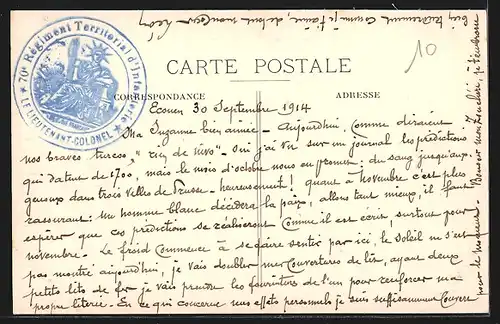 70e Régiment Territorial d'Infanterie
LE LIEUTENANT-COLONEL
10
CARTE POSTALE
CORRESPONDANCE
ADRESSE
Ecouen 30 Septembre 1914
Ma Suzanne bien aimée - Aujourd'hui, comme disaient
nos braves turcos, "rien de nivo". Oui j'ai vu sur un journal les prédictions
qui datent de 1700, mais le mois d'octobre nous en promet: du sang jusqu'aux
genoux dans trois villes de Prusse - heureusement! quant à Novembre c'est plus
rassurant: Un homme blanc décidera la paix, allons tant mieux, il faut
espérer que ces prédictions se réaliseront comme il est écrit surtout pour
novembre. Le froid commence à se faire sentir par ici, le soleil ne s'est
pas montré aujourd'hui, je vais doubler mes couvertures de lit, ayant deux
petits lits de fer je vais prendre les fournitures de l'un pour renforcer ma
propre literie. En ce qui concerne mes effets personnels je suis suffisamment couvert
pour le moment. Bonsoir mon
bien tendrement comme je t'aime,